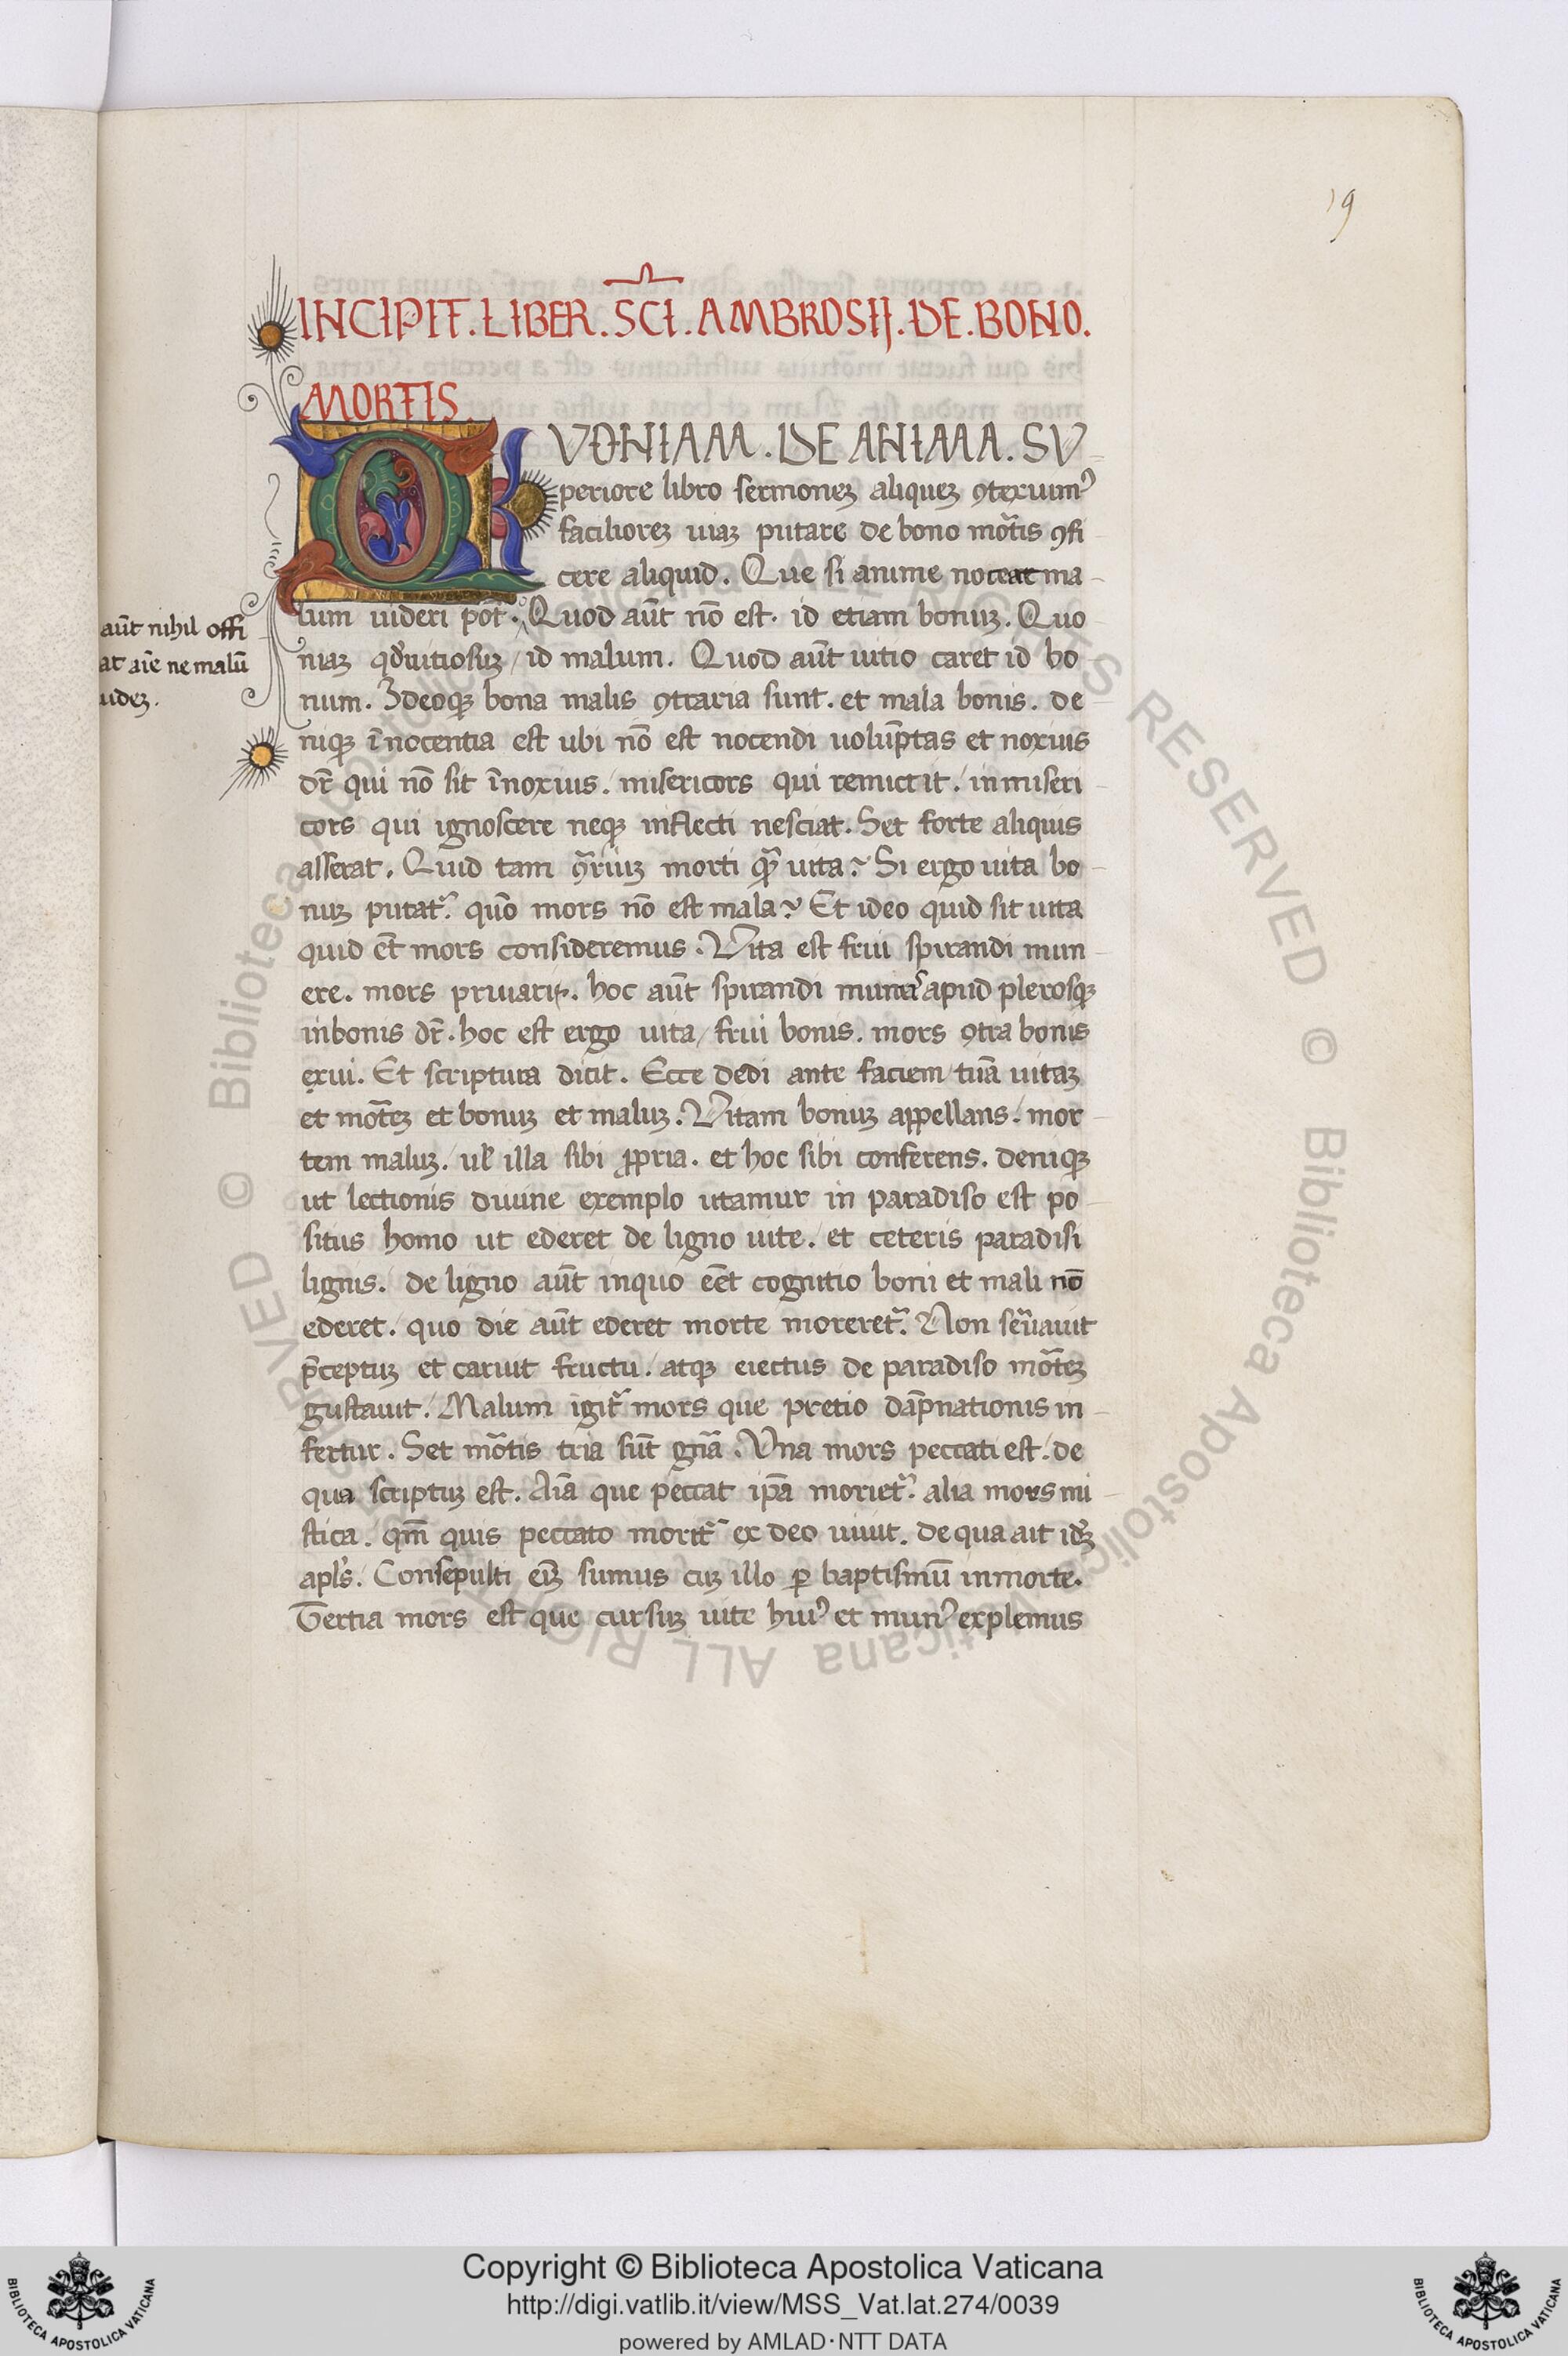 19
INCIPIT. LIBER. SC̅I. AMBROSIJ. DE. BONO.
MORTIS
QVONIAM. DE ANIMA. SV
periore libro sermoneꝫ aliqueꝫ ꝯtexuimꝰ
facilioreꝫ uiaꝫ putare de bono mo͛tis ꝯfi
cere aliquid. Que si anime noceat ma
lum uideri pōt. Quod aūt nō est. id etiam bonuꝫ. Quo
niaꝫ qd̓ uitiosuꝫ / id malum. Quod aūt uitio caret id bo
aūt nihil offi
at aīe ne malū
uideꝫ.
num. Ideoqꝫ bona malis ꝯtraria sunt. et mala bonis. de
niqꝫ īnocentia est ubi nō est nocendi uolūptas et noxius
dr̄ qui nō sit īnoxius. misericors qui remictit. inmiseri
cors qui ignoscere neqꝫ inflecti nesciat. Set forte aliquis
asserat. Quid tam ꝯ͛riuꝫ morti qꝫ͛ uita? Si ergo uita bo
nuꝫ putat͛. quō mors nō est mala? Et ideo quid sit uita
quid et̄ mors consideremus. Vita est frui spirandi mun
ere. mors priuari. hoc aūt spirandi munꝰ apud plerosqꝫ
inbonis dr̄. hoc est ergo uita / frui bonis. mors ꝯtra bonis
exui. Et scriptura dicit. Ecce dedi ante faciem tuā uitaꝫ
et mo͛teꝫ et bonuꝫ et maluꝫ. Vitam bonuꝫ appellans. mor
tem maluꝫ. ul̓ illa sibi ꝓpria. et hoc sibi conferens. deniqꝫ
ut lectionis diuine exemplo utamur in paradiso est po
situs homo ut ederet de ligno uite. et ceteris paradisi
lignis. de ligno aūt inquo eēt cognitio boni et mali nō
ederet. quo die aūt ederet morte moreret͛. Non seruauit
p̄ceptuꝫ et caruit fructu. atqꝫ eiectus de paradiso mo͛teꝫ
gustauit. Malum igit͛ mors que pretio dāpnationis in
fertur. Set mo͛tis tria sūt gnā. Vna mors peccati est. de
qua scriptuꝫ est. Aīa que peccat ip̄a moriet͛. alia mors mi
stica. qm̄ quis peccato morit͛ ex deo uiuit. de qua ait idꝫ
apl̓s. Consepulti eīꝫ sumus cuꝫ illo ꝑ baptismū inmorte.
Tertia mors est que cursuꝫ uite huiꝰ et munꝰ explemus
© Biblioteca Apostolica Vaticana ALL RIGHTS RESERVED © Biblioteca Apostolica Vaticana ALL RIGHTS RESERVED
Copyright © Biblioteca Apostolica Vaticana
http://digi.vatlib.it/view/MSS_Vat.lat.274/0039
powered by AMLAD·NTT DATA
BIBLIOTECA APOSTOLICA VATICANA
BIBLIOTECA APOSTOLICA VATICANA